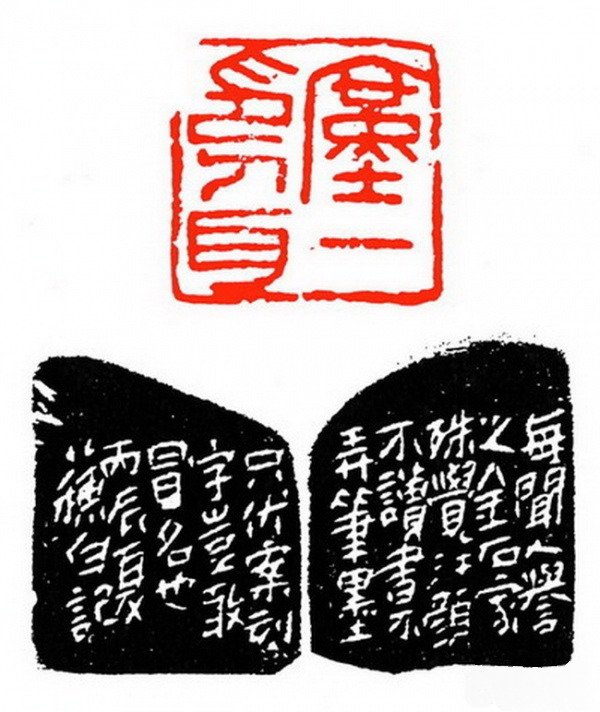 一
每聞人譽
之金石家
殊覺汗顏
不讀書不
弄筆墨
只伏案刻
字豈敢
冒名也
丙辰夏
蘓白記